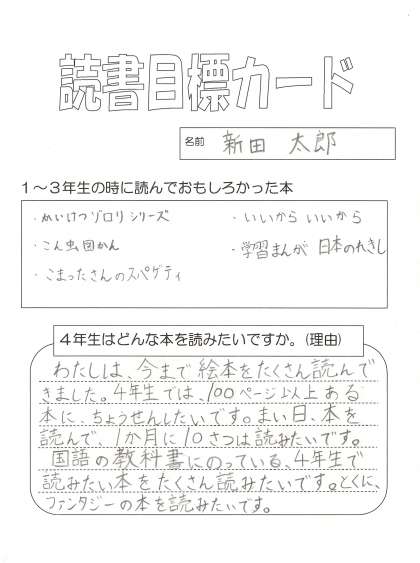 読書目標カード
名前 新田 太郎
1~3年生の時に読んでおもしろかった本
・かいけつゾロリ シリーズ ・いいから いいから
・こん虫図かん ・学習まんが 日本のれきし
・こまったさんのスパゲティ
4年生はどんな本を読みたいですか。(理由)
わたしは、今まで絵本をたくさん読んで
きました。4年生では、100ページ以上ある
本に、ちょうせんしたいです。まい日、本を
読んで、1か月に10さつは読みたいです。
国語の教科書にのっている、4年生で
読みたい本をたくさん読みたいです。とくに、
ファンタジーの本を読みたいです。